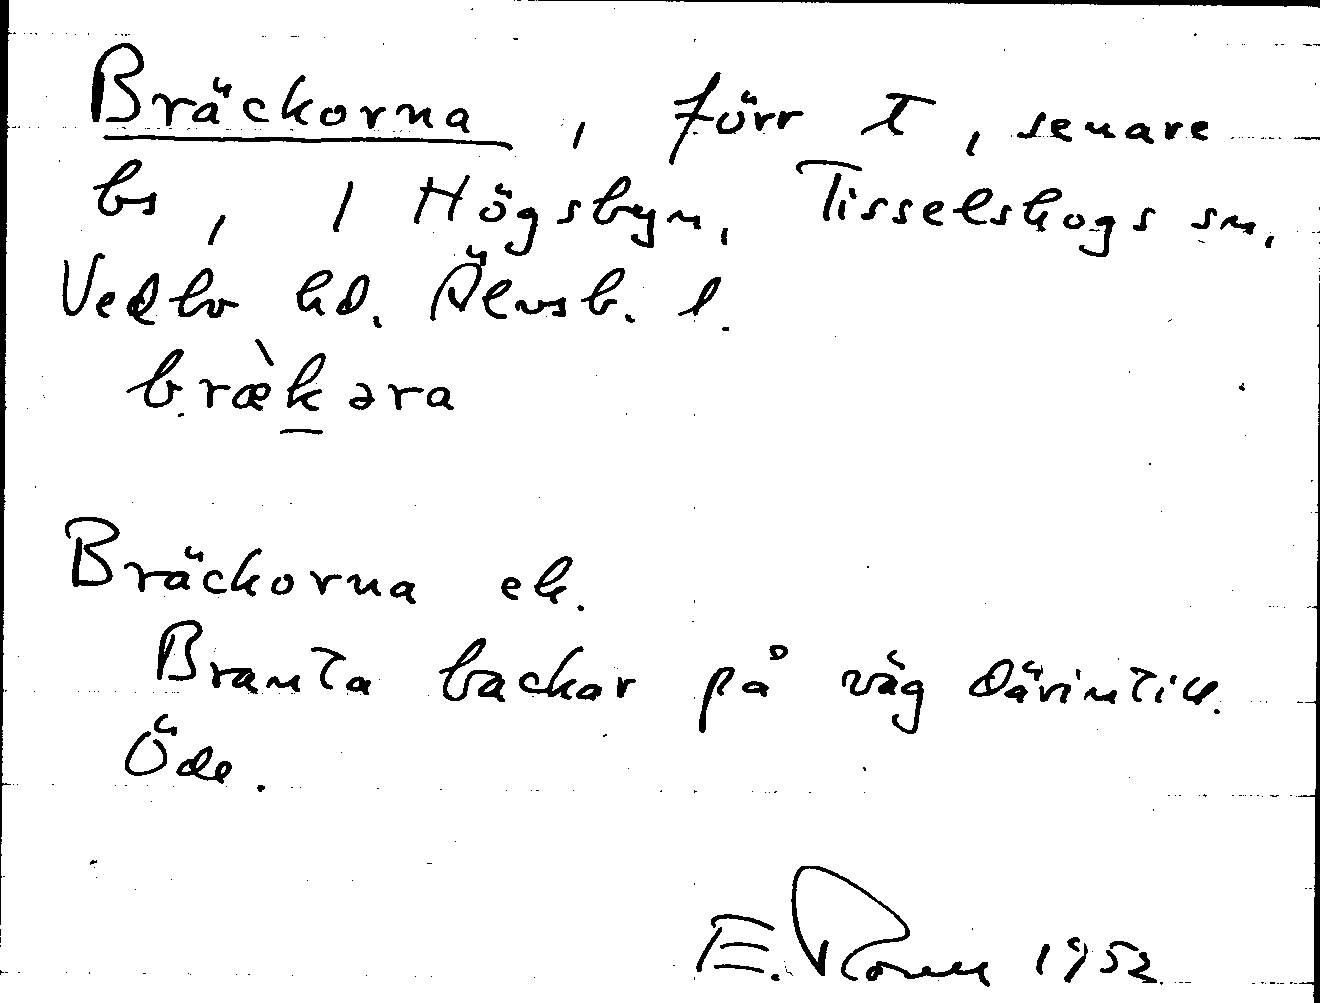 Bräckorna, förr T, senare
bs, 1 Högsbyn, Tisselskogs sn,
Vedbo hd. Älvsb. l.
bræ̀kəra
Bräckorna ek.
Branta backar på väg därintill.
Öde.
E. 1952